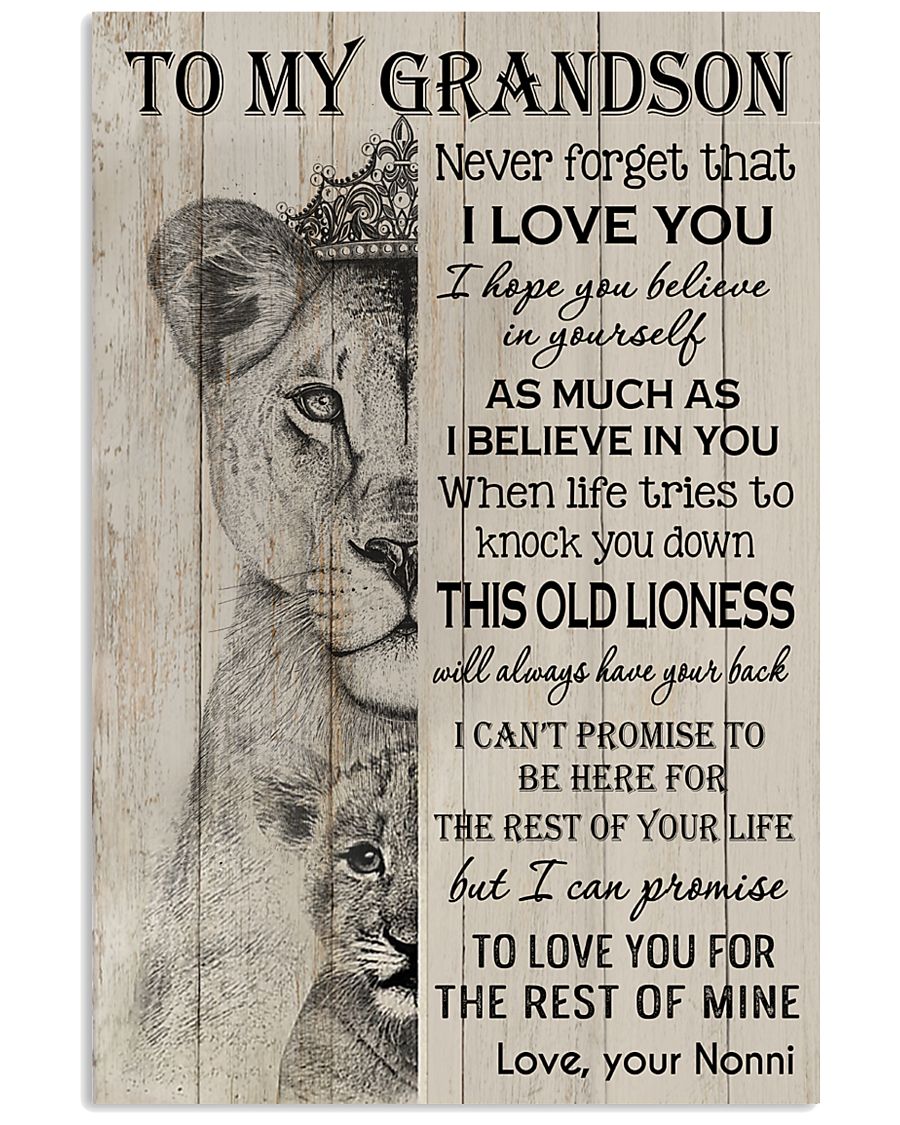 TO MY GRANDSON
Never forget that
I LOVE YOU
I hope you believe
in yourself
AS MUCH AS
I BELIEVE IN YOU
When life tries to
knock you down
THIS OLD LIONESS
will always have your back
I CAN'T PROMISE TO
BE HERE FOR
THE REST OF YOUR LIFE
but I can promise
TO LOVE YOU FOR
THE REST OF MINE
Love, your Nonni